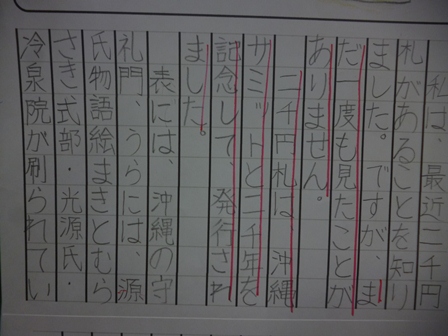 私は、最近二千円
札があることを知り
ました。ですが、ま
だ一度も見たことが
ありません。
二千円札は、沖縄
サミットと二千年を
記念して、発行され
ました。
表には、沖縄の守
礼門、うらには、源
氏物語絵まきとむら
さき式部・光源氏・
冷泉院が刷られてい